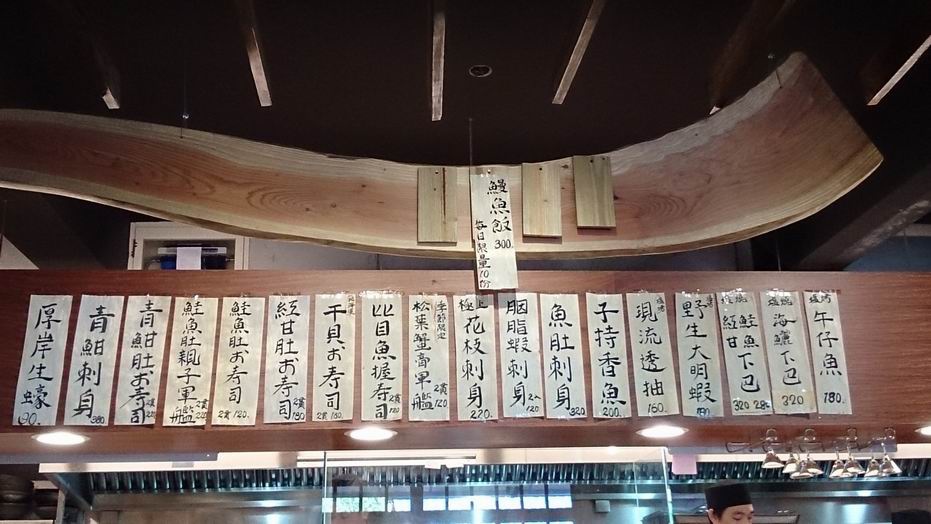 鰻魚飯 300.
每日限量10份
厚岸生蠔 90.
青魽刺身 380
青魽肚お寿司 2貫 220
鮭魚肚親子軍艦 2貫 120.
鮭肚お寿司 2貫 120.
紅甘肚お寿司 2貫 180
干貝お寿司 2貫 180.
比目魚握寿司 2貫 120
季節限定
松葉蟹膏軍艦 2貫 120
極上花枝刺身 220.
胭脂蝦刺身
魚肚刺身 320
子持香魚 200.
現流透抽 160.
野生大明蝦 180
鮭魚下巴 280
紅甘 320
塩烤
海鱺下巴 320
塩烤
午仔魚 180.